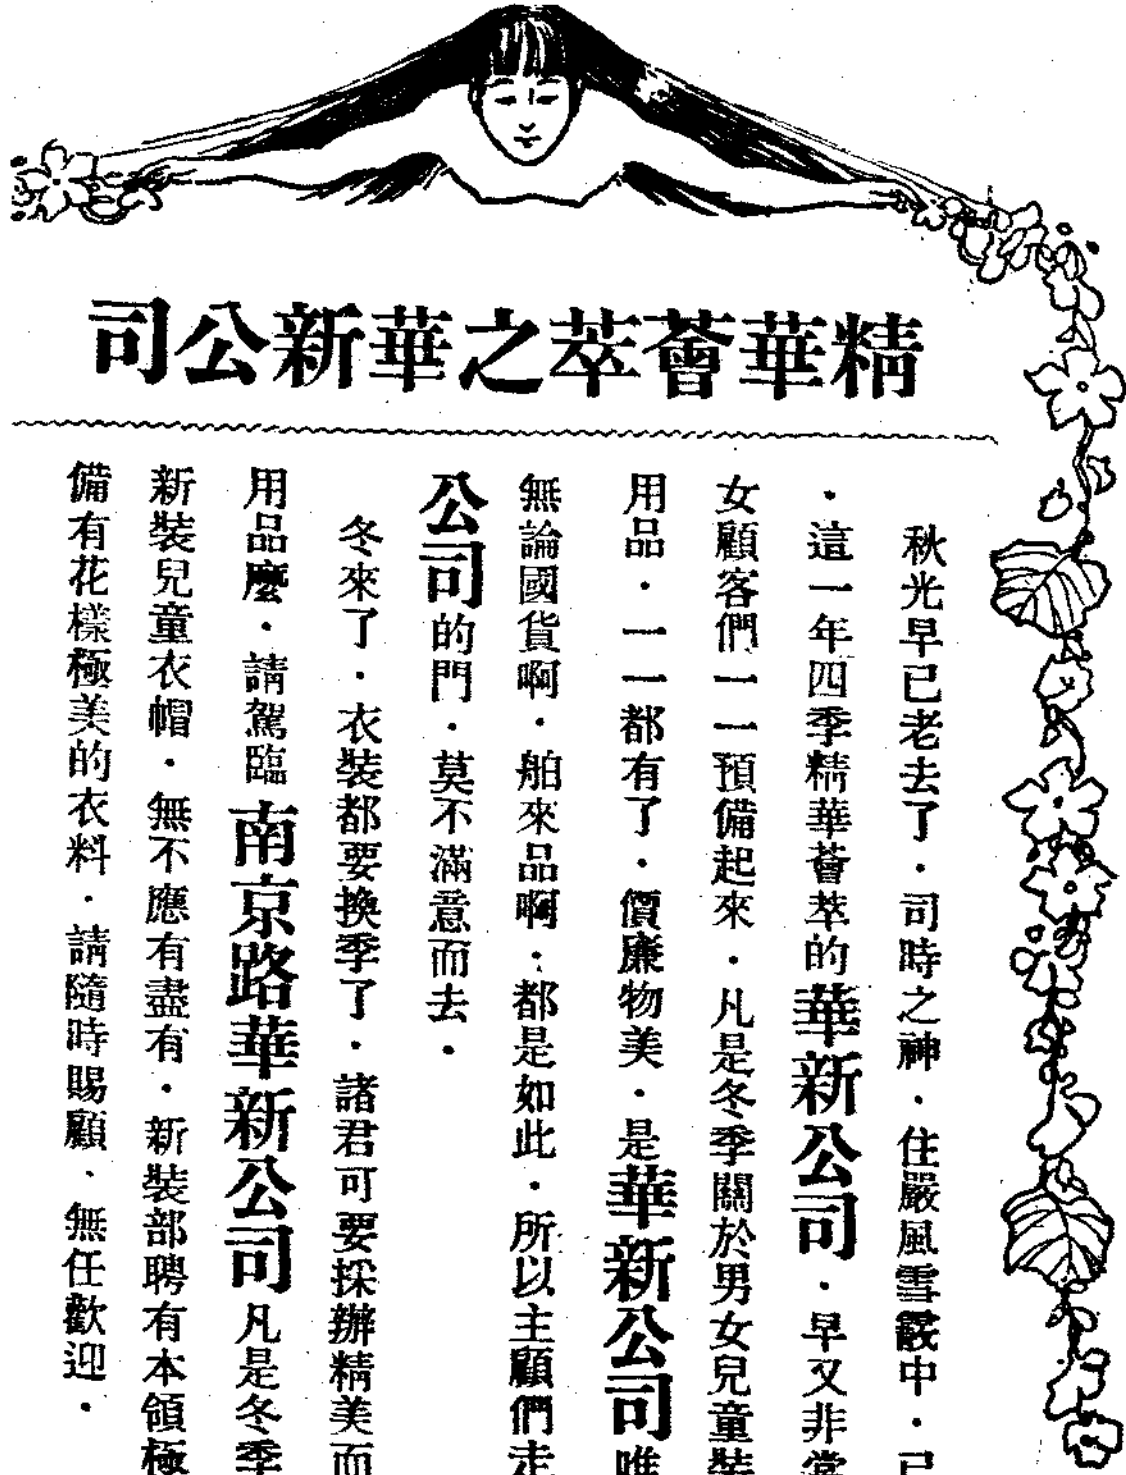 精華薈萃之華新公司
秋光早已老去了．司時之神．住嚴風雪霰中．已
．這一年四季精華薈萃的華新公司．早又非常
女顧客們一一預備起來．凡是冬季關於男女兒童裝
用品．一一都有了．價廉物美．是華新公司唯
無論國貨啊．舶來品啊．都是如此．所以主顧們走
公司的門．莫不滿意而去．
冬來了．衣裝都要換季了．諸君可要採辦精美而
用品麼．請駕臨南京路華新公司凡是冬季
新裝兒童衣帽．無不應有盡有．新裝部聘有本領極
備有花樣極美的衣料．請隨時賜顧、無任歡迎．